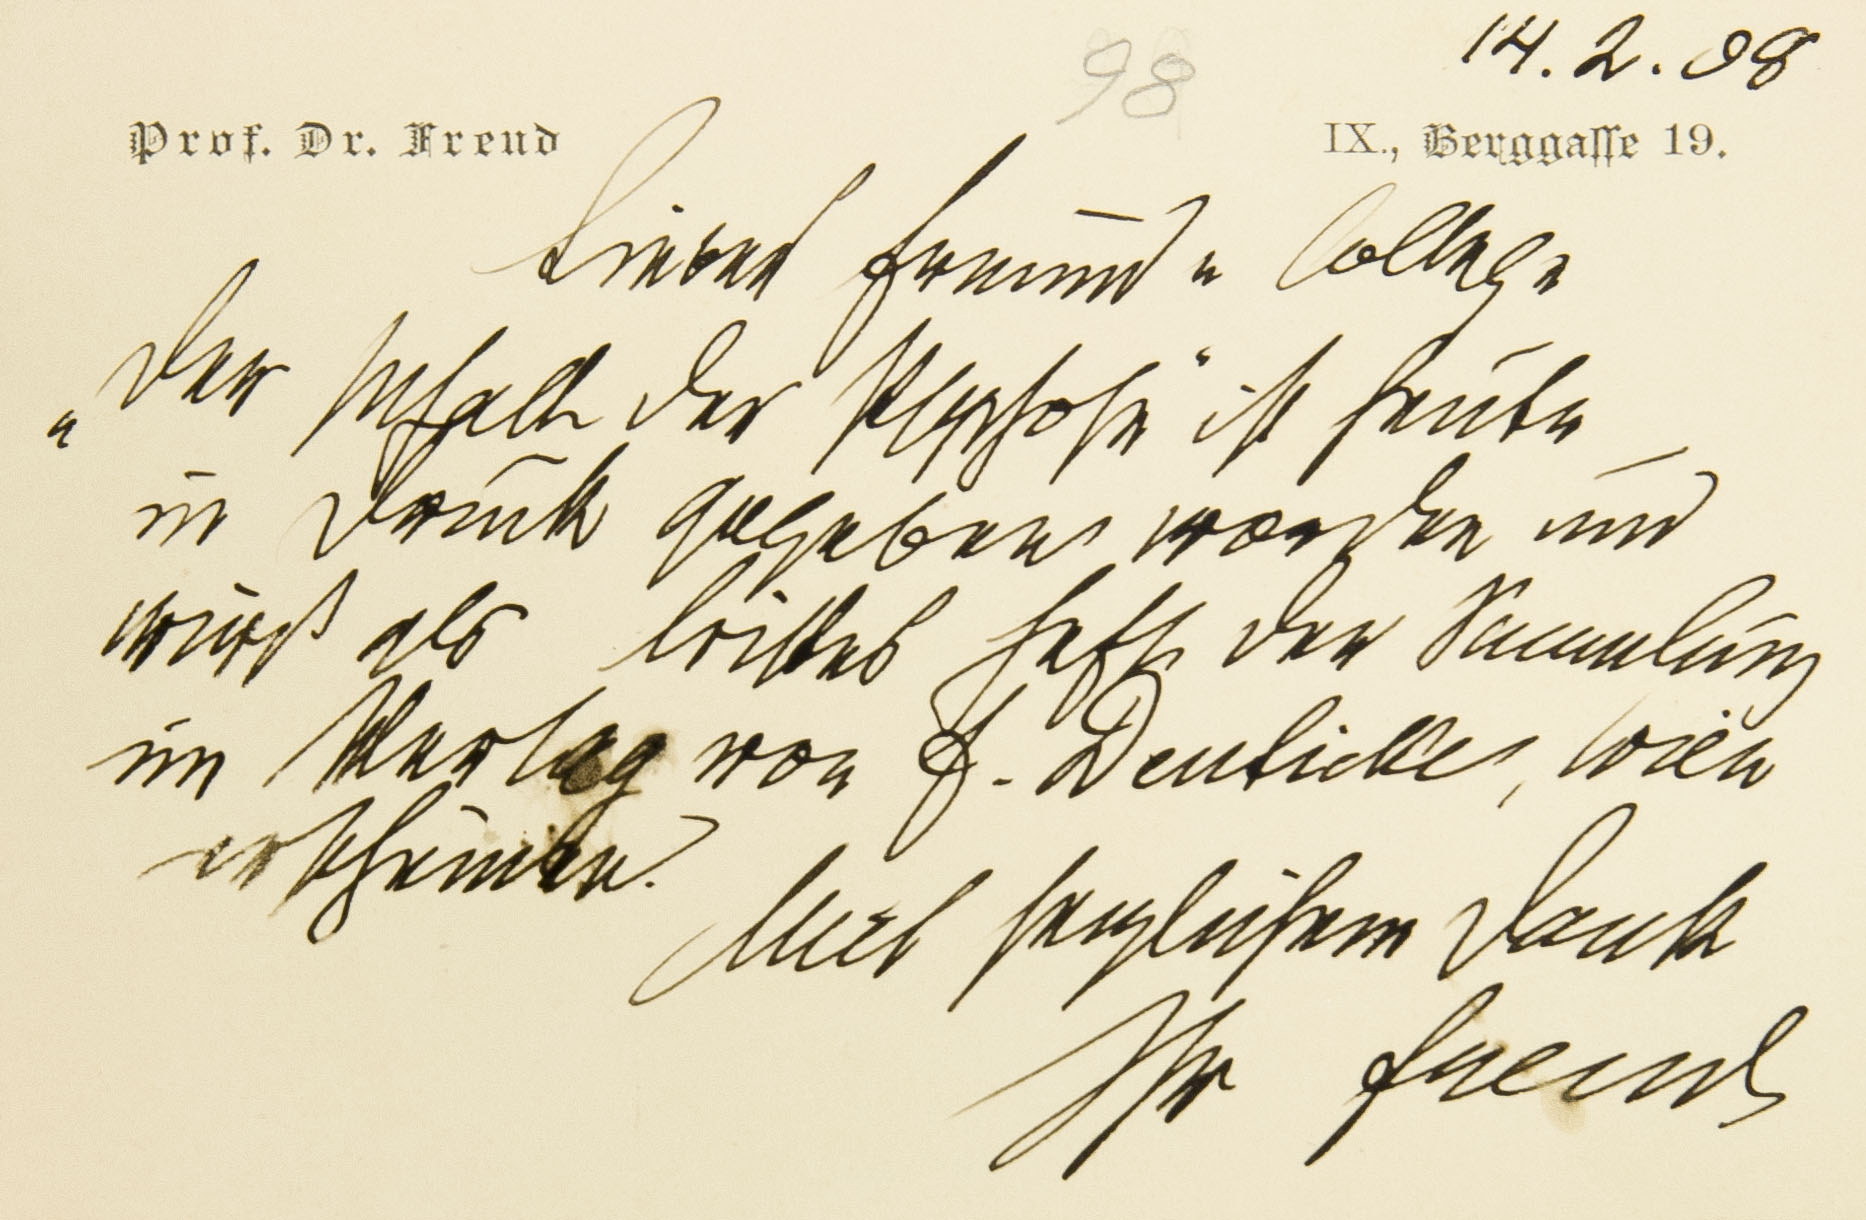 14.2.08
98
Prof. Dr. Freud
IX., Berggasse 19.
Lieber Freund u College
„Der Inhalt der Psychose“ ist heute
in Druck gegeben worden und
wird als drittes Heft der Sammlung
im Verlag von F. Deuticke, Wien
erscheinen.
Mit herzlichem Dank
Ihr Freud